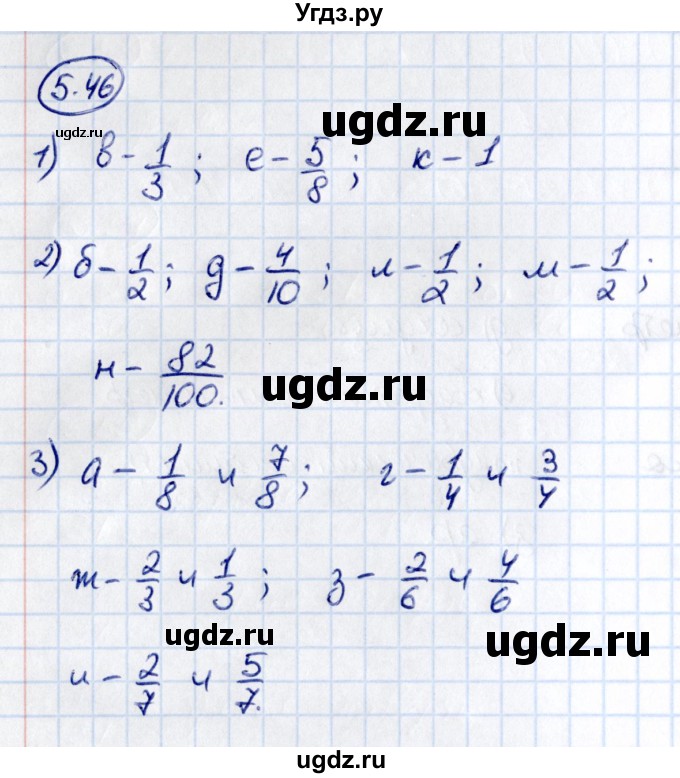 Угдз.ру
5.46
ugdz.ru
ugdz.ru
1) в - 1/3 ; е - 5/8 ; к - 1
2) б - 1/2 ; д - 4/10 ; л - 1/2 ; м - 1/2 ;
н - 82/100.
ugdz.ru
3) а - 1/8 и 7/8 ; г - 1/4 и 3/4
ж - 2/3 и 1/3 ; з - 2/6 и 4/6
ugdz.ru
ugdz.ru
и - 2/7 и 5/7.
ugdz.ru